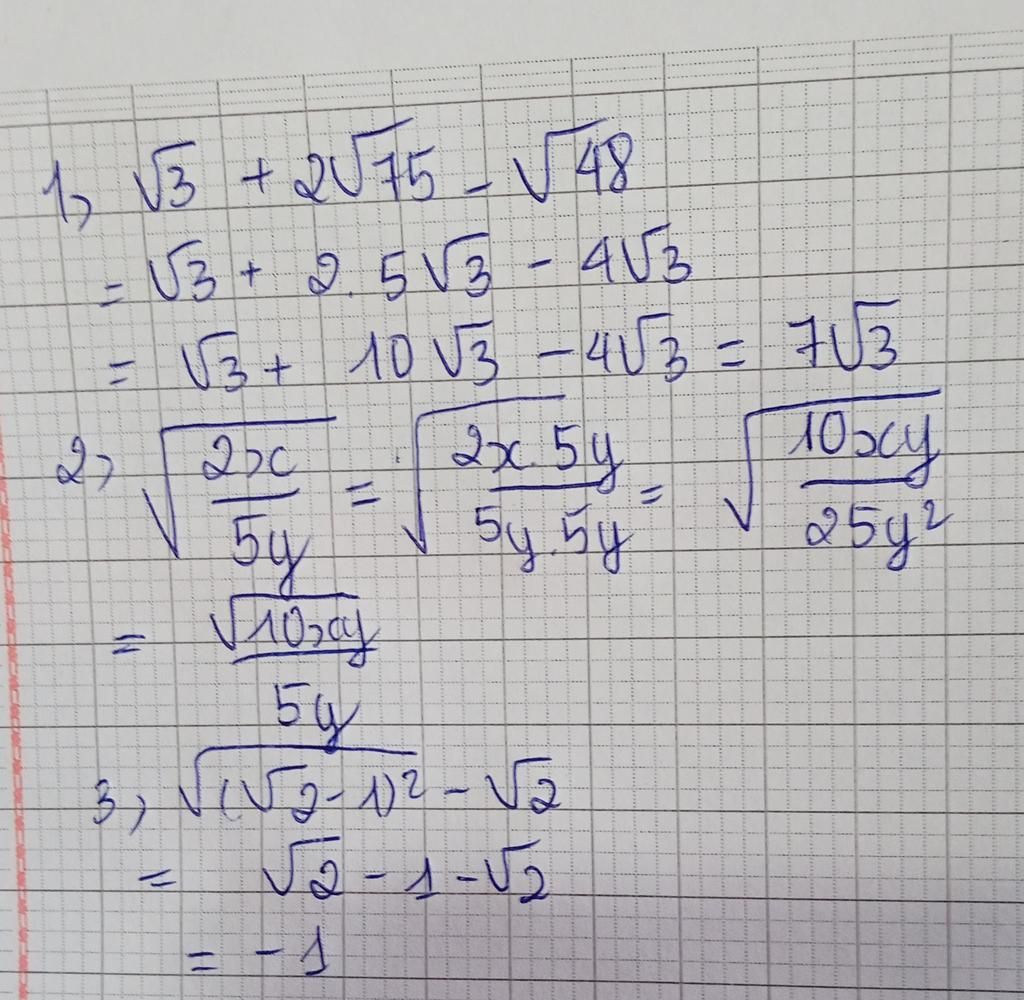 1, √3 + 2√75 - √48
= √3 + 2.5√3 - 4√3
= √3 + 10√3 - 4√3 = 7√3
2, √(2x/5y) = √(2x.5y/5y.5y) = √(10xy/25y²)
= √10xy/5y
3, √(√2-1)² - √2
= √2 - 1 - √2
= -1